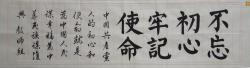 不忘
初心
牢記
使命
中國共產黨
人的初心和
使命就是
為中國人民
謀幸福為中
華民族謀復
興